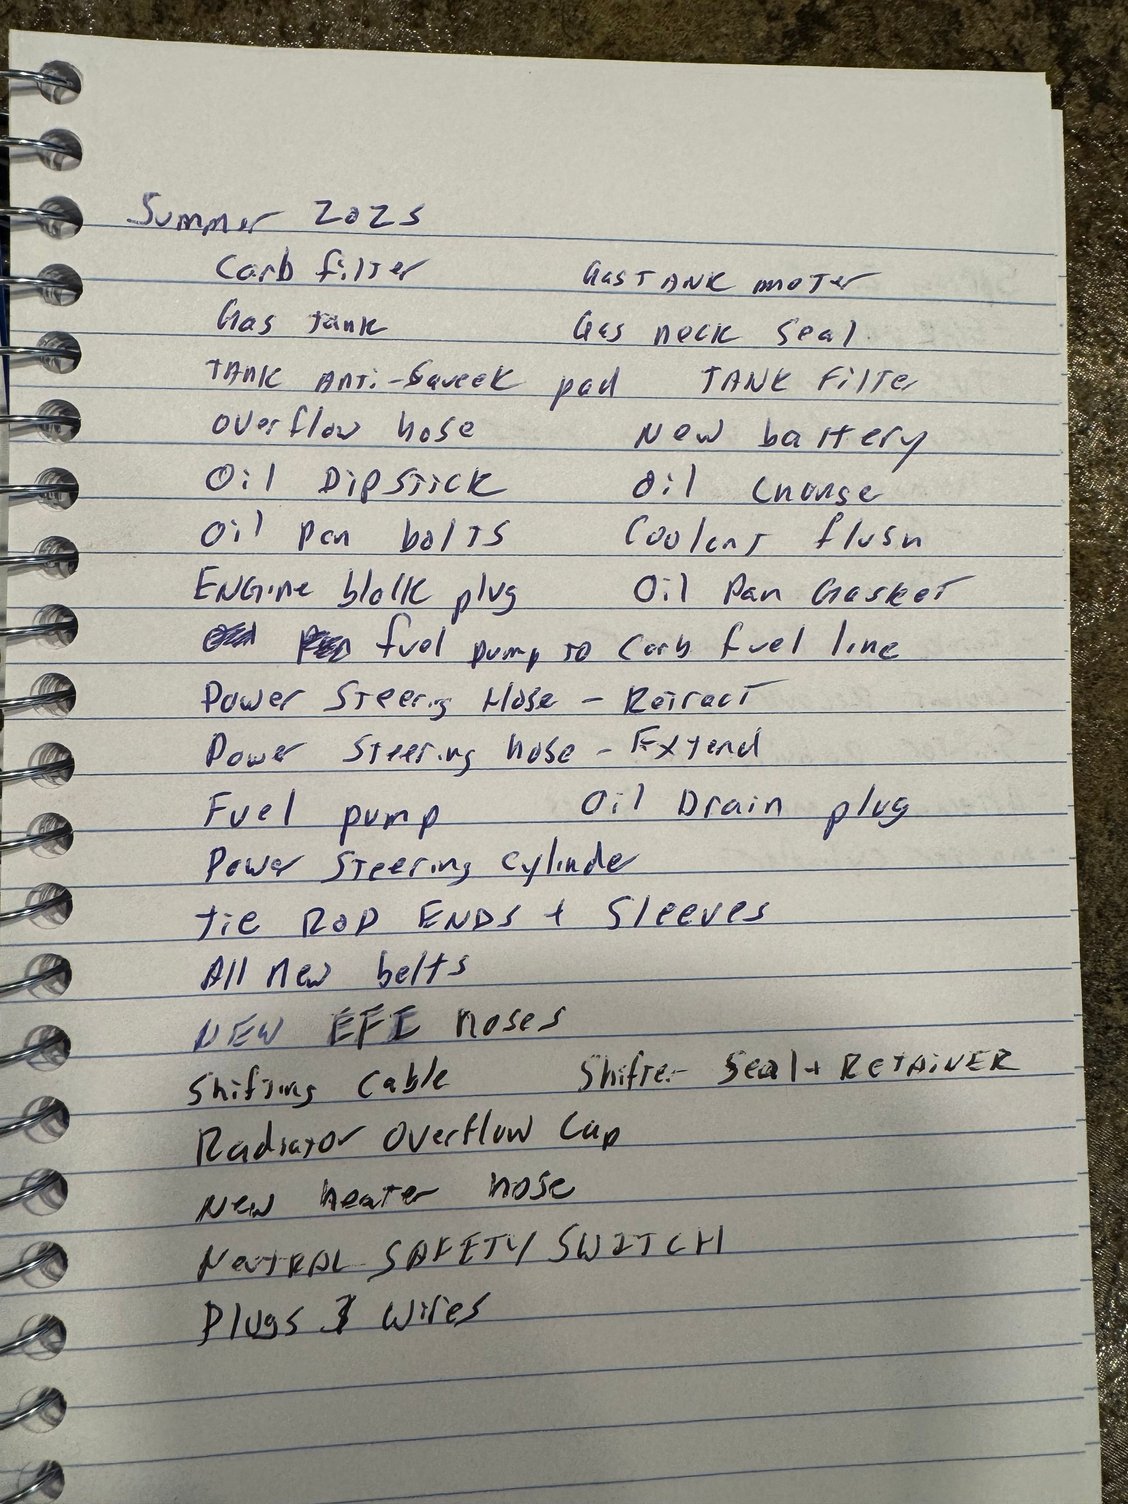 Summer 2025
Carb filter Gas TANK moter
Gas Tank Gas neck Seal
TANK ANTi-Squeek pad TANK Filter
overflow hose New battery
Oil DipSTICK Oil Change
Oil Pan bolts Coolant flush
ENGine block plug Oil Pan Gasket
fuel pump to Carb fuel line
Power Steering Hose - Retract
Power Steering hose - Extend
Fuel pump Oil Drain plug
Power Steering Cylinder
Tie ROD ENDS + Sleeves
All new belts
NEW EFI hoses
Shifting Cable Shifter Seal + RETAINER
Radiator Overflow Cap
New heater hose
NeuTRAL SAFETY SWITCH
Plugs & Wires